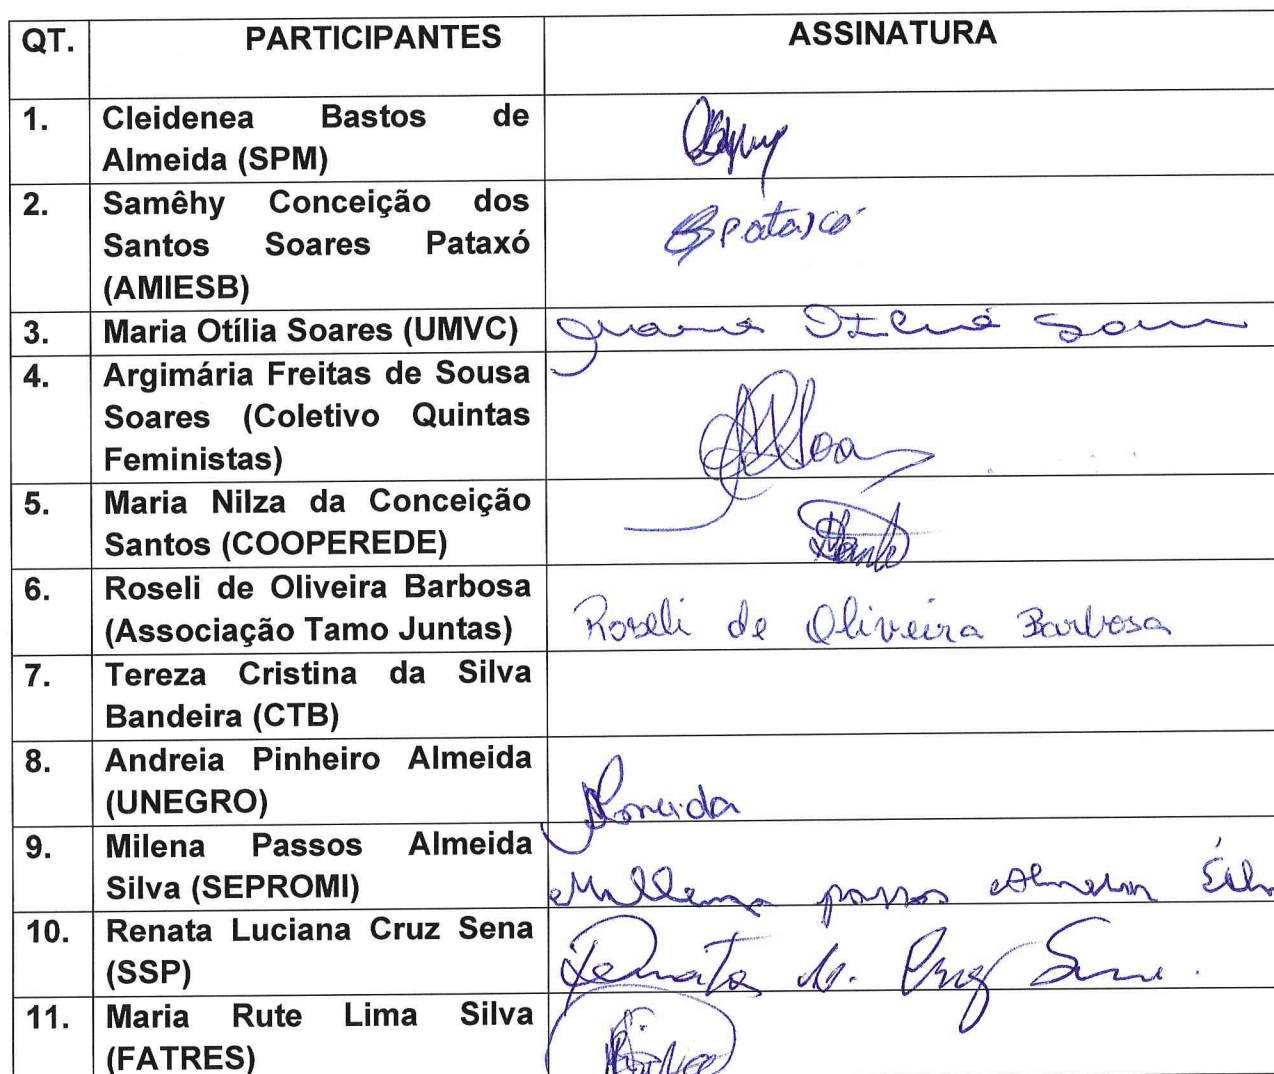 QT. PARTICIPANTES ASSINATURA
1. Cleidenea Bastos de
Almeida (SPM)
2. Samêhy Conceição dos
Santos Soares Pataxó
(AMIESB)
3. Maria Otília Soares (UMVC)
4. Argimária Freitas de Sousa
Soares (Coletivo Quintas
Feministas)
5. Maria Nilza da Conceição
Santos (COOPEREDE)
6. Roseli de Oliveira Barbosa
(Associação Tamo Juntas) Roseli de Oliveira Barbosa
7. Tereza Cristina da Silva
Bandeira (CTB)
8. Andreia Pinheiro Almeida
(UNEGRO) Almeida
9. Milena Passos Almeida
Silva (SEPROMI)
10. Renata Luciana Cruz Sena
(SSP)
11. Maria Rute Lima Silva
(FATRES)